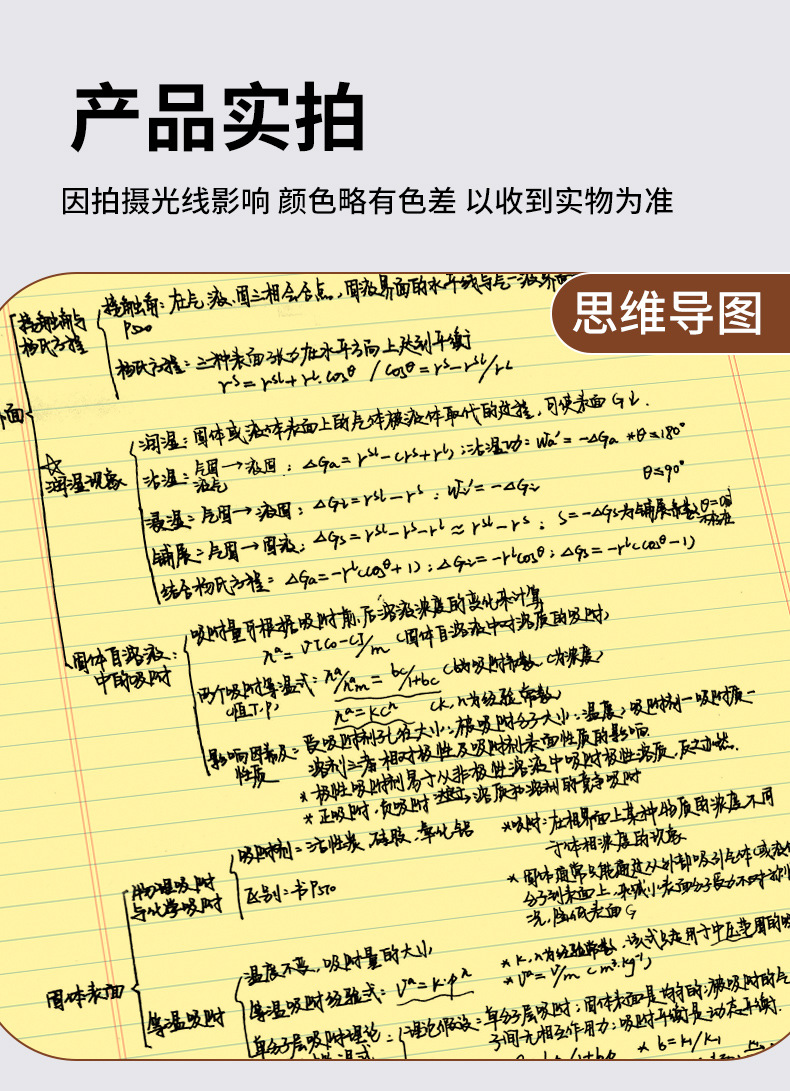 产品实拍
因拍摄光线影响 颜色略有色差 以收到实物为准
思维导图
接触角与
杨氏方程
接触角：在气、液、固三相会合点，固液界面的水平线与气-液界面
P520
杨氏方程：三种表面张力在水平方向上达到平衡
rˢ = rˢᴸ + rᴸ·cosθ / cosθ = rˢ - rˢᴸ/rᴸ
面
☆
润湿现象
润湿：固体或液体表面上的气体被液体取代的过程，可使表面G↓.
沾湿：气固→液固：△Ga = rˢᴸ - (rˢ + rᴸ)；沾湿功：Wa' = -△Ga *θ≤180°
液气
浸湿：气固→液固：△Gi = rˢᴸ - rˢ ; Wi' = -△Gi θ≤90°
铺展：气固→固液：△Gs = rˢᴸ - rˢ - rᴸ ≈ rˢᴸ - rˢ ; S = -△Gs为铺展系数 θ=0或
不存在
结合杨氏方程：△Ga = -rᴸ(cosθ+1)；△Gi = -rᴸcosθ；△Gs = -rᴸ(cosθ-1)
固体自溶液：
中的吸附
吸附量可根据吸附前、后溶液浓度的变化来计算
nᵃ = V(C₀-C)/m (固体自溶液中对溶质的吸附)
两个吸附等温式：nᵃ/nᵃm = bc/1+bc (b为吸附系数 C为浓度)
(恒T、P)
nᵃ = kcⁿ (k,n为经验常数)
影响因素及：
性质
受吸附剂孔径大小；被吸附分子大小；温度；吸附剂-吸附质-
溶剂三者相对极性及吸附剂表面性质的影响
*极性吸附剂易于从非极性溶液中吸附极性溶质，反之亦然.
*正吸附，负吸附 溶质和溶剂的竞争吸附
固体表面
物理吸附
与化学吸附
吸附剂：活性炭、硅胶、氧化铝
区别：书P510
*吸附：在相界面上某种物质的浓度不同
于体相浓度的现象
*固体通常只能通过从外部吸引气体(或液体
分子到表面上，来减小表面分子受力不对称
况，降低表面G
等温吸附
温度不变，吸附量的大小
等温吸附经验式：Vᵃ = k·pⁿ
*k,n为经验常数，该式只适用于中压范围的吸
*Vᵃ = V/m (m³·kg⁻¹)
单分子层吸附理论：
理论假设：单分子层吸附；固体表面是均匀的；被吸附的气
子间无相互作用力；吸附平衡是动态平衡.
*b = k₁/k₋₁